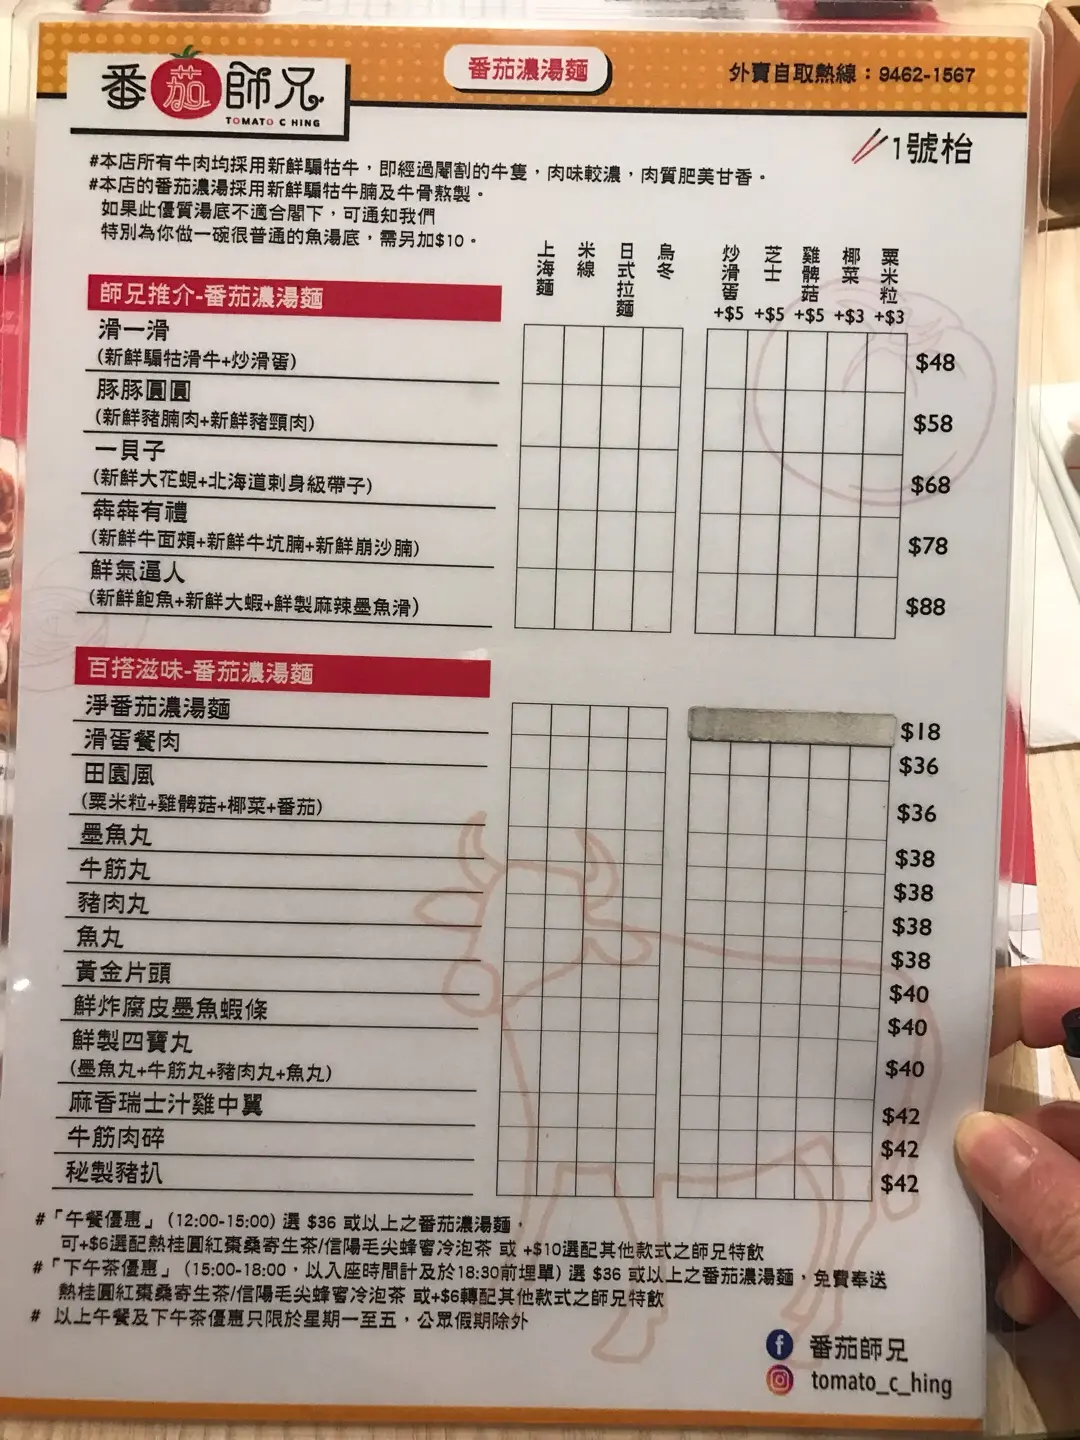 番茄師兄
TOMATO C HING
番茄濃湯麵
外賣自取熱線：9462-1567
1號枱
#本店所有牛肉均採用新鮮騸牯牛，即經過閹割的牛隻，肉味較濃，肉質肥美甘香。
#本店的番茄濃湯採用新鮮騸牯牛腩及牛骨熬製。
如果此優質湯底不適合閣下，可通知我們
特別為你做一碗很普通的魚湯底，需另加$10。
上海麵
米線
日式拉麵
烏冬
炒滑蛋 +$5
芝士 +$5
雞髀菇 +$5
椰菜 +$3
粟米粒 +$3
師兄推介-番茄濃湯麵
滑一滑
(新鮮騸牯滑牛+炒滑蛋) $48
豚豚圓圓
(新鮮豬腩肉+新鮮豬頸肉) $58
一貝子
(新鮮大花蜆+北海道刺身級帶子) $68
犇犇有禮
(新鮮牛面頰+新鮮牛坑腩+新鮮崩沙腩) $78
鮮氣逼人
(新鮮鮑魚+新鮮大蝦+鮮製麻辣墨魚滑) $88
百搭滋味-番茄濃湯麵
淨番茄濃湯麵 $18
滑蛋餐肉 $36
田園風
(粟米粒+雞髀菇+椰菜+番茄) $36
墨魚丸 $38
牛筋丸 $38
豬肉丸 $38
魚丸 $38
黃金片頭 $40
鮮炸腐皮墨魚蝦條 $40
鮮製四寶丸
(墨魚丸+牛筋丸+豬肉丸+魚丸) $40
麻香瑞士汁雞中翼 $42
牛筋肉碎 $42
秘製豬扒 $42
#「午餐優惠」(12:00-15:00) 選 $36 或以上之番茄濃湯麵，
可+$6選配熱桂圓紅棗桑寄生茶/信陽毛尖蜂蜜冷泡茶 或 +$10選配其他款式之師兄特飲
#「下午茶優惠」(15:00-18:00，以入座時間計及於18:30前埋單) 選 $36 或以上之番茄濃湯麵，免費奉送
熱桂圓紅棗桑寄生茶/信陽毛尖蜂蜜冷泡茶 或+$6轉配其他款式之師兄特飲
# 以上午餐及下午茶優惠只限於星期一至五，公眾假期除外
番茄師兄
tomato_c_hing